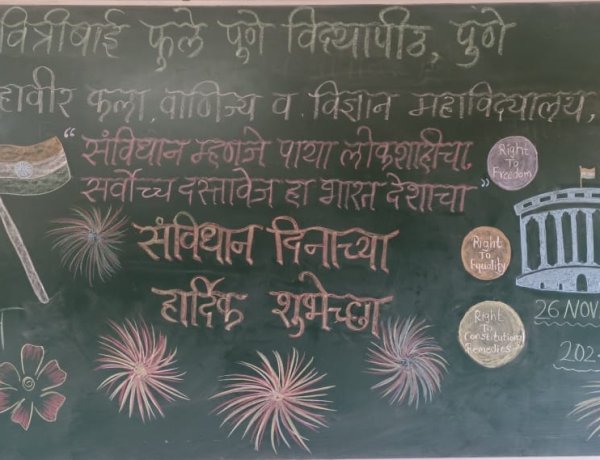 वित्रीबाई फुले पुणे विद्यापीठ, पुणे
हावीर कला, वाणिज्य व विज्ञान महाविद्यालय,
"संविधान म्हणजे पाया लोकशाहीचा,
सर्वोच्च दस्तावेज हा भारत देशाचा"
संविधान दिनाच्या
हार्दिक शुभेच्छा
Right
To
Freedom
Right
To
Equality
Right
To
Constitutional
Remedies
26 NOV
202
T